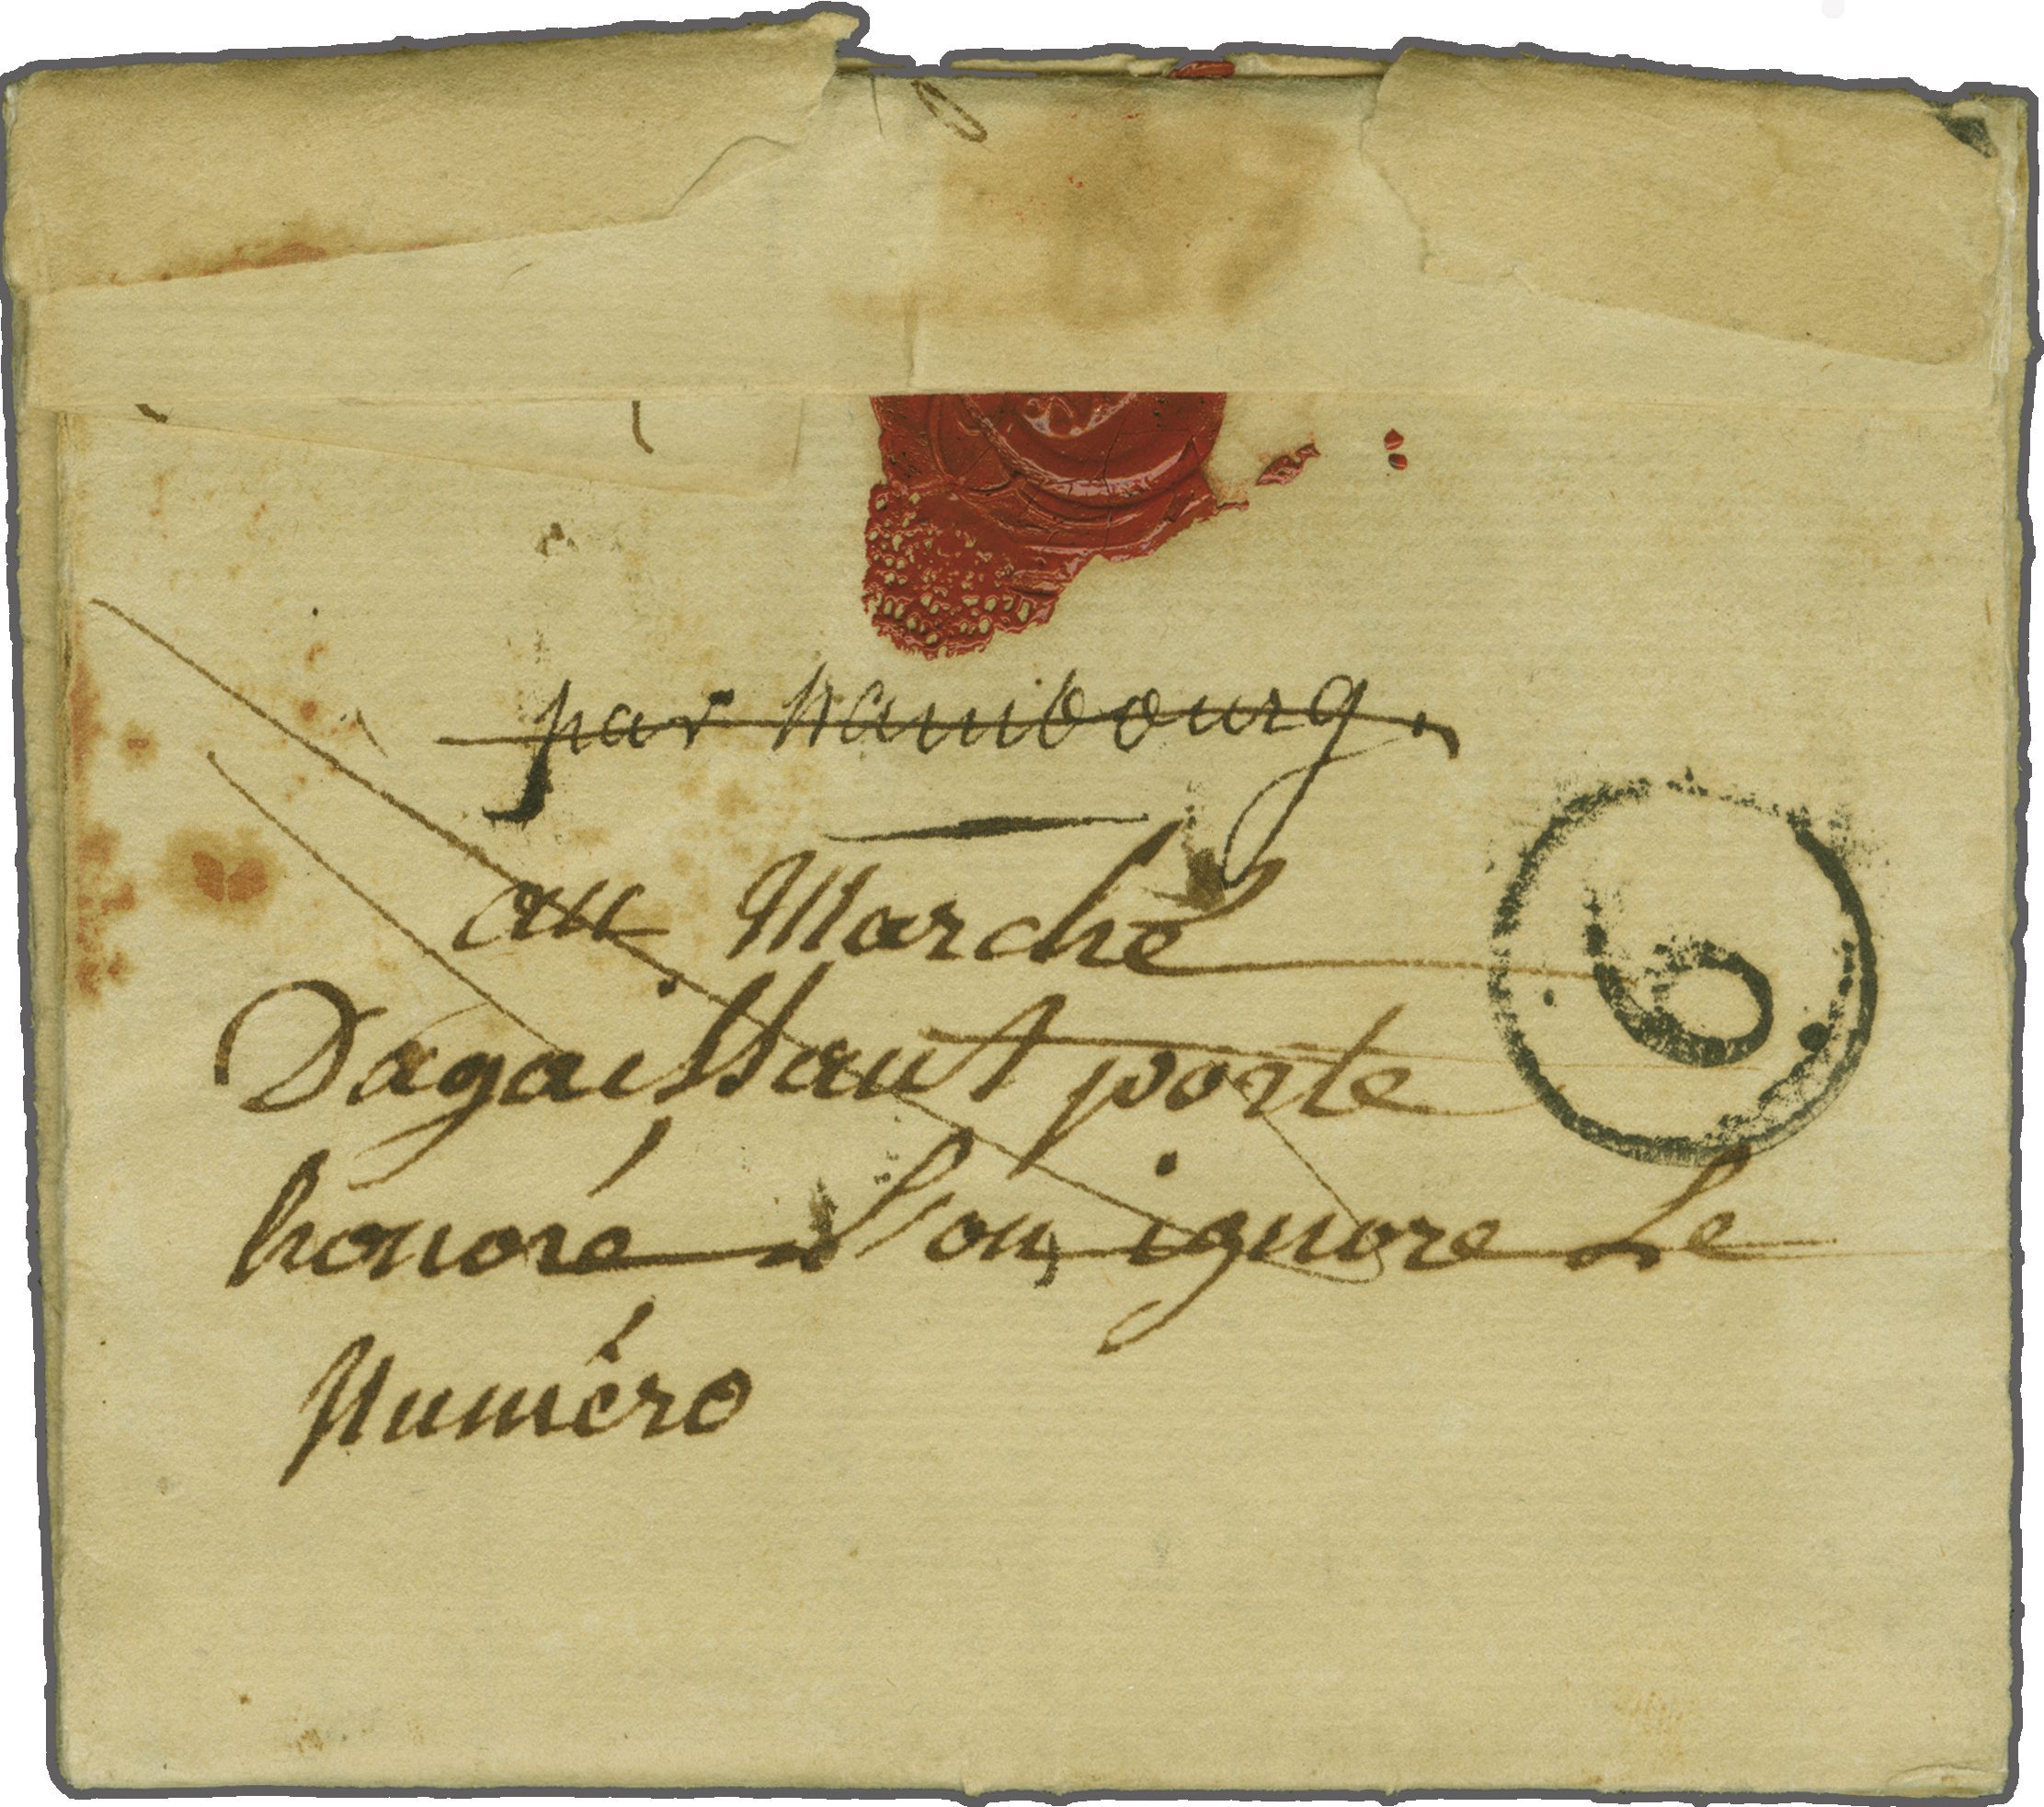 par hambourg.
au Marché
Dagaissaut porte
honoré l'on ignore Le
Numéro
6